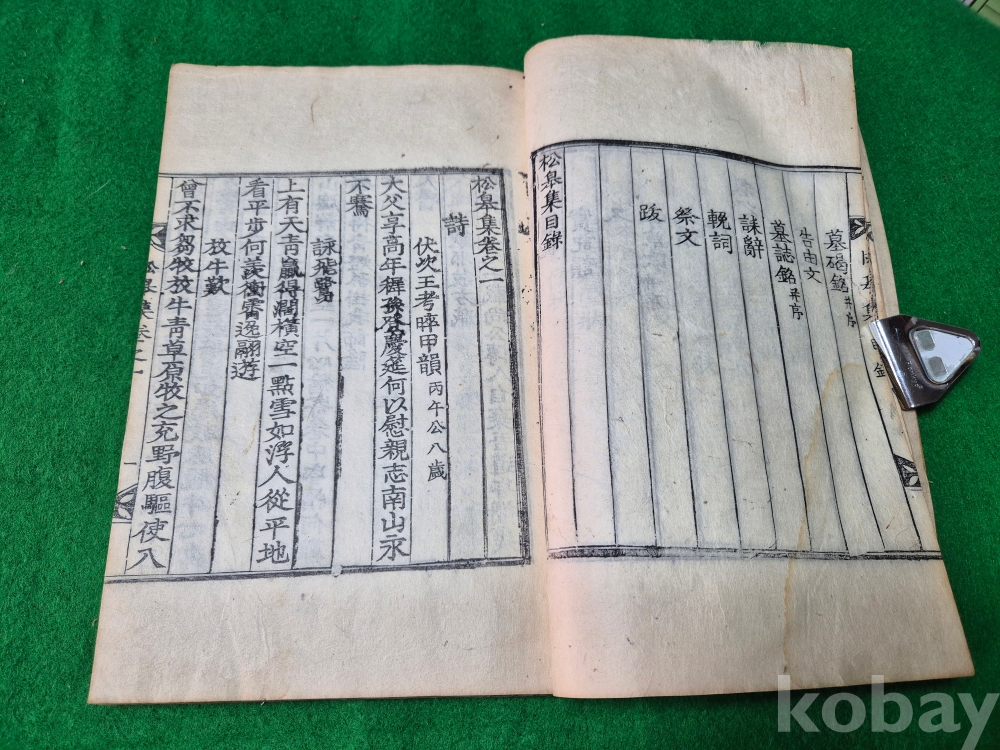 墓碣銘 并序
告由文
墓誌銘 并序
誄辭
輓詞
祭文
跋
松皐集目錄
松皐集卷之一
詩
伏次王考晬甲韻 丙午公八歲
大父享高年稚孫慶筵何以慰親志南山永
不騫
詠飛鷺
上有天青贏得濶橫空一點雪如浮人從平地
看平步何羨衝霄逸翮遊
放牛歎
曾不求芻牧放牛青草原牧之充野腹驅使八
松皐集卷之一
kobay